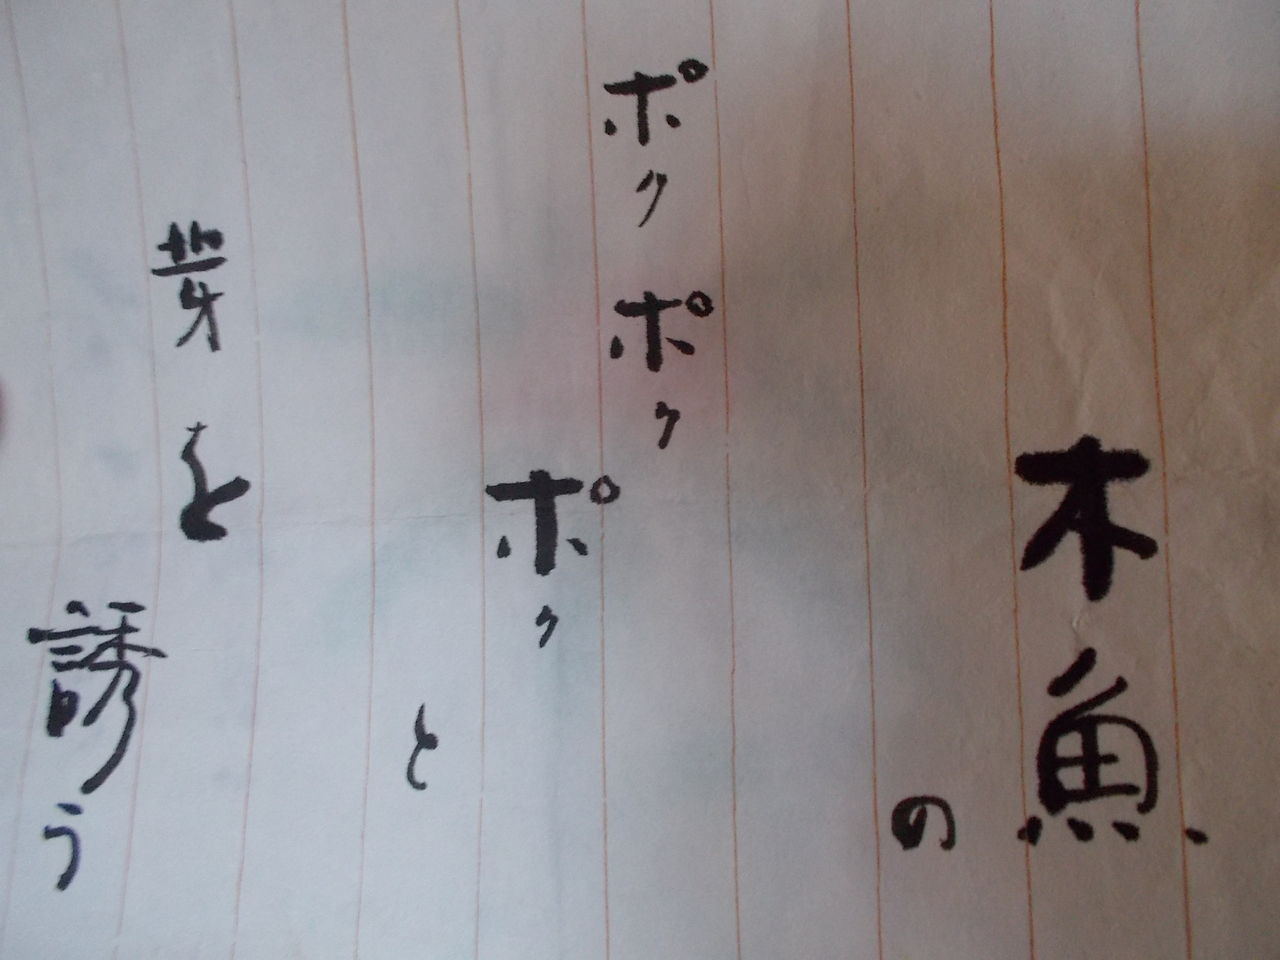 木魚
の
ポクポク
ポク
と
芽を
誘う